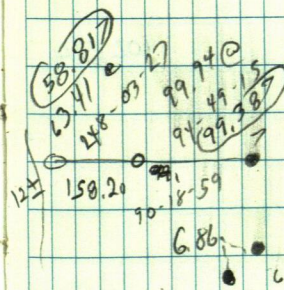 58.81
63.41
248-03-27
99.94
94-49-15
99.38
124
158.20
90-18-59
6.86